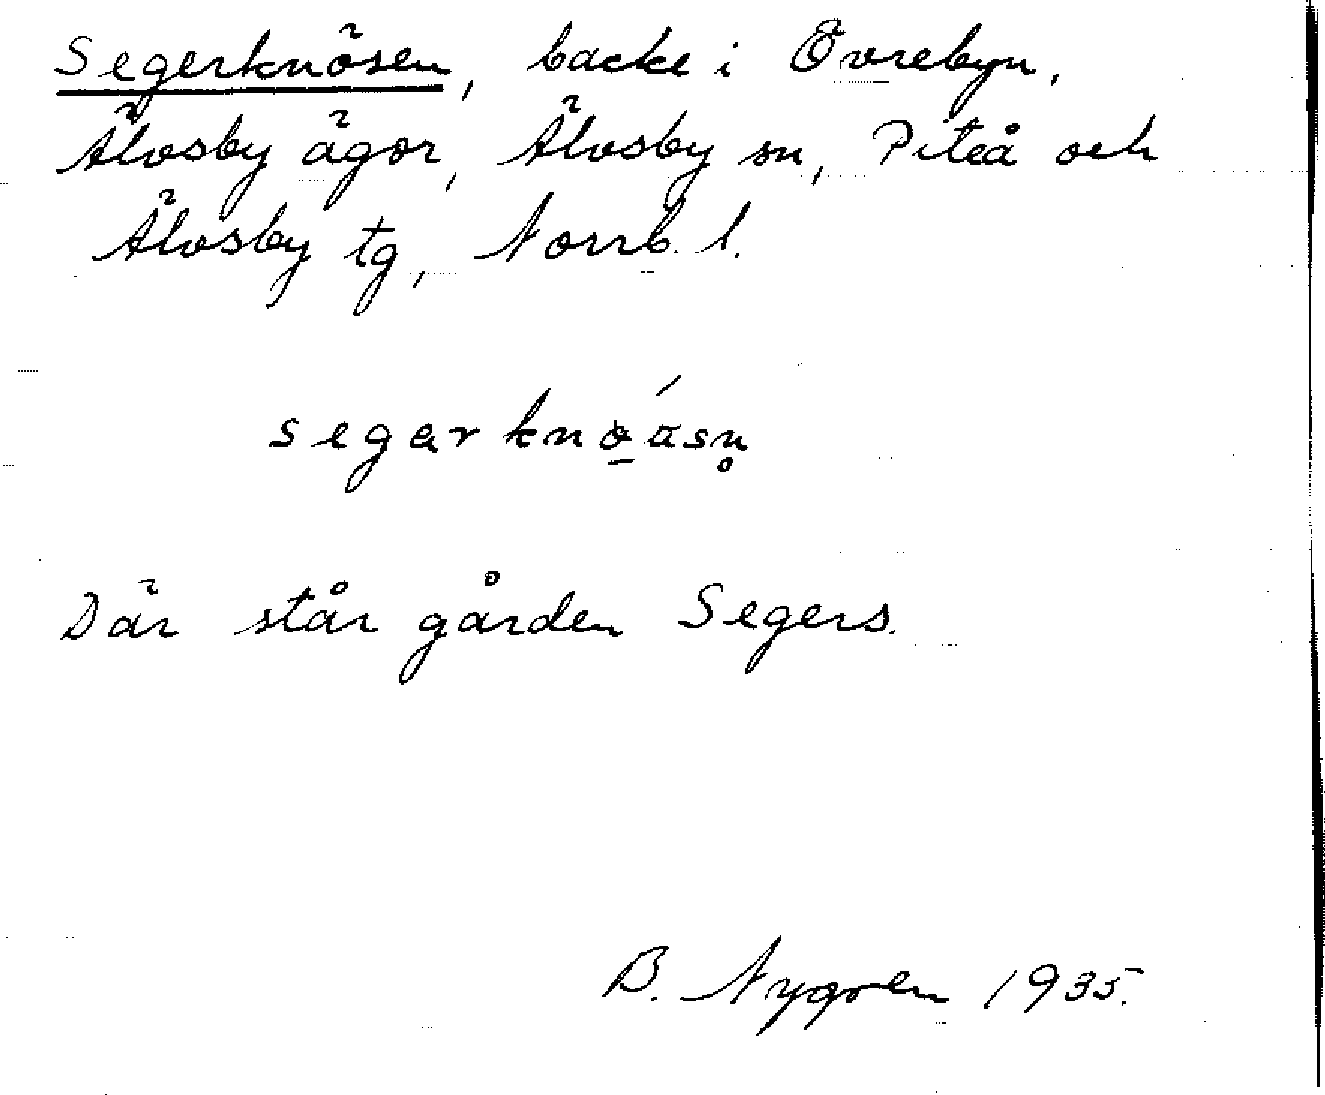 Segerknösen, backe i Övrebyn,
Älvsby ägor, Älvsby sn, Piteå och
Älvsby tg, Norrb. l.
Där står gården Segers.
B. Nygren 1935.